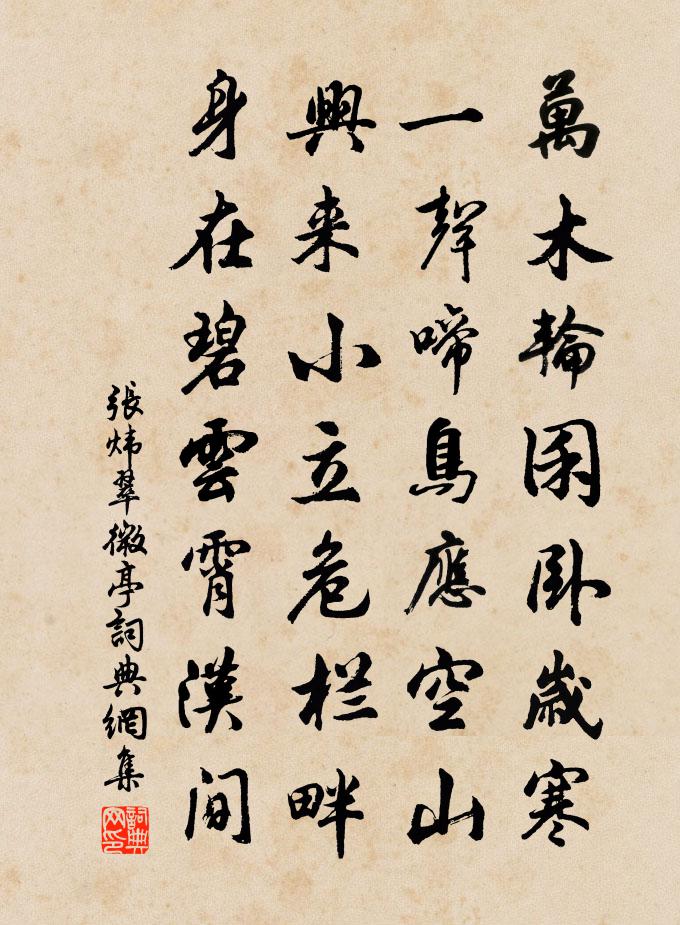 萬木輪囷卧歲寒
一聲啼鳥應空山
興来小立危栏畔
身在碧雲霄漢間
張炜翠微亭詞典網集
詞典网印